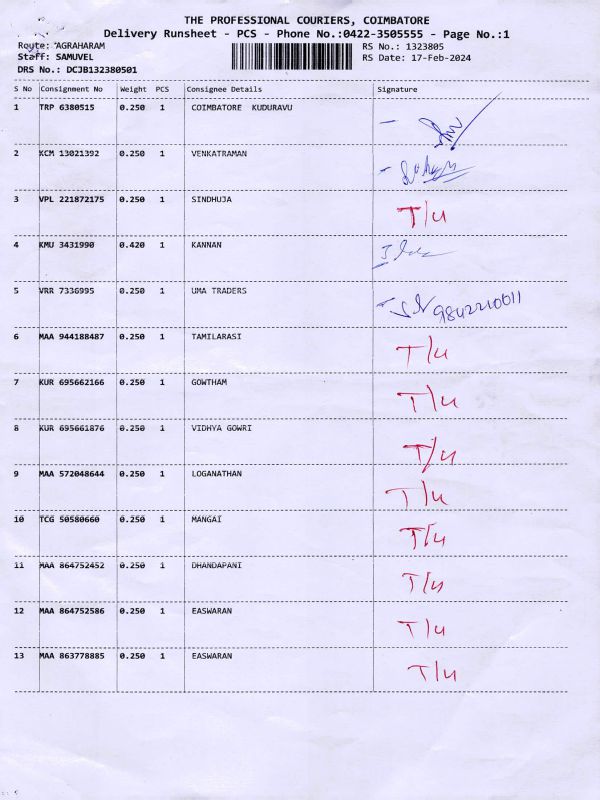 THE PROFESSIONAL COURIERS, COIMBATORE
Delivery Runsheet - PCS - Phone No.:0422-3505555 - Page No.:1
Route: AGRAHARAM RS No.: 1323805
Staff: SAMUVEL RS Date: 17-Feb-2024
DRS No.: DCJB132380501
S No Consignment No Weight PCS Consignee Details Signature
1 TRP 6380515 0.250 1 COIMBATORE KUDURAVU
2 KCM 13021392 0.250 1 VENKATRAMAN
3 VPL 221872175 0.250 1 SINDHUJA T/U
4 KMU 3431990 0.420 1 KANNAN
5 VRR 7336995 0.250 1 UMA TRADERS 9842210011
6 MAA 944188487 0.250 1 TAMILARASI T/U
7 KUR 695662166 0.250 1 GOWTHAM T/U
8 KUR 695661876 0.250 1 VIDHYA GOWRI T/U
9 MAA 572048644 0.250 1 LOGANATHAN T/U
10 TCG 50580660 0.250 1 MANGAI T/U
11 MAA 864752452 0.250 1 DHANDAPANI T/U
12 MAA 864752586 0.250 1 EASWARAN T/U
13 MAA 863778885 0.250 1 EASWARAN T/U